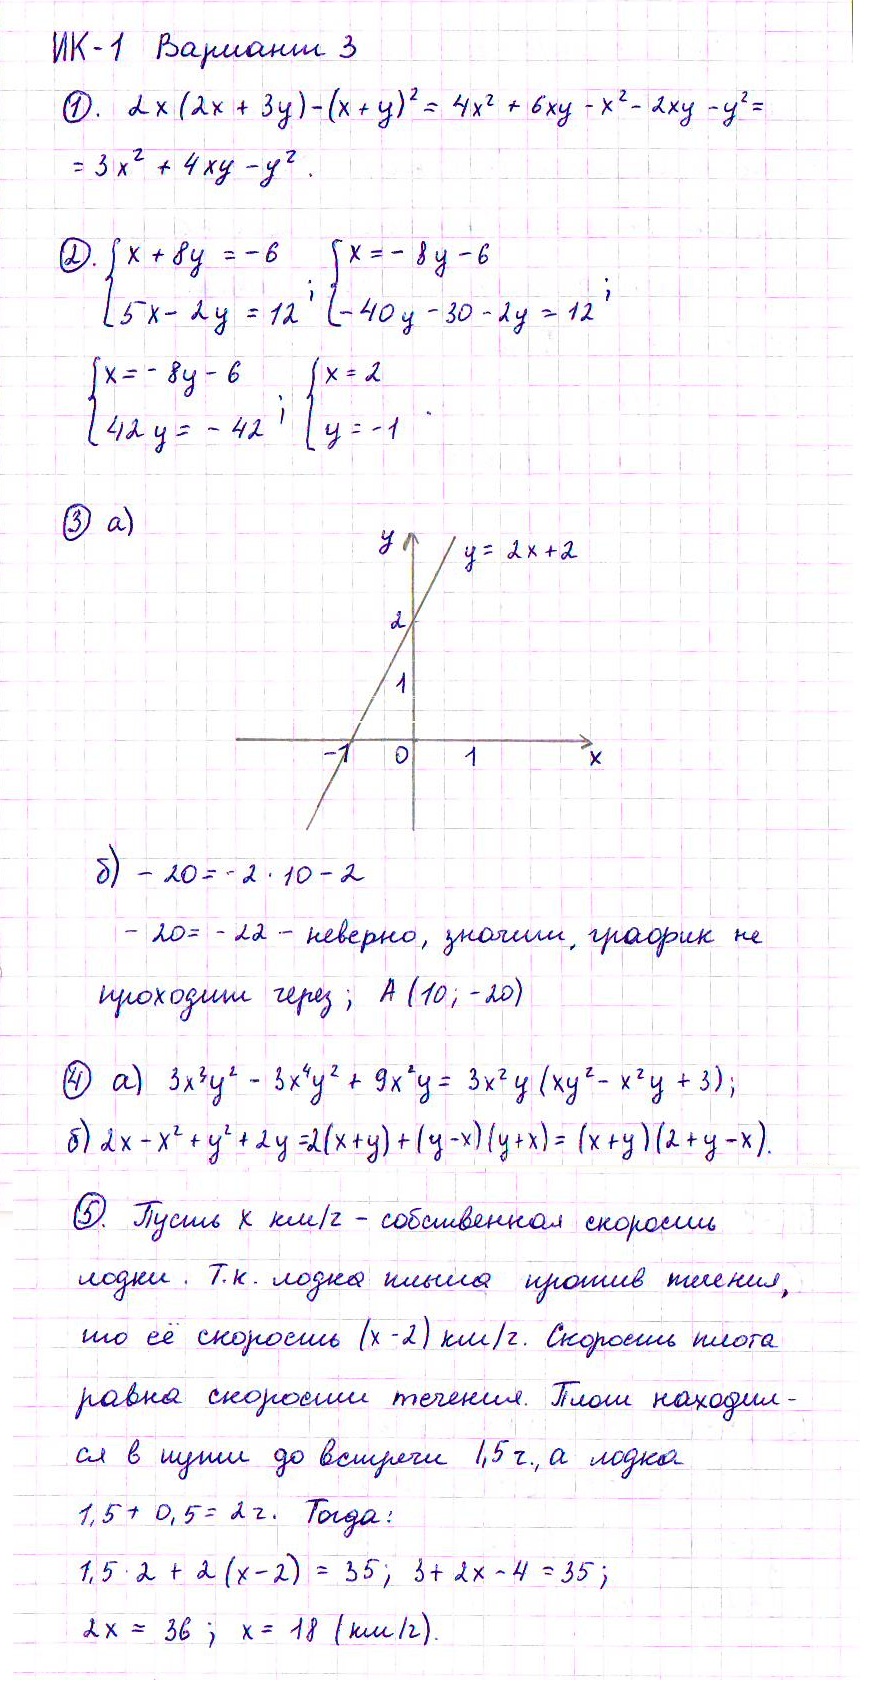 ИК-1 Вариант 3
①. 2x(2x + 3y)-(x+y)² = 4x² + 6xy - x² - 2xy - y² =
= 3x² + 4xy - y².
②. { x + 8y = -6 { x = - 8y - 6
{ 5x - 2y = 12 ; { -40y - 30 - 2y = 12 ;
{ x = - 8y - 6 { x = 2
{ 42y = - 42 ; { y = -1 .
③ а)
y y = 2x+2
2
1
-1 0 1 x
б) - 20 = -2 · 10 - 2
- 20 = - 22 - неверно, значит, график не
проходит через; А (10; -20)
④ а) 3x³y² - 3x⁴y² + 9x²y = 3x²y (xy² - x²y + 3);
б) 2x - x² + y² + 2y = 2(x+y) + (y-x)(y+x) = (x+y)(2+y-x).
⑤. Пусть x км/ч - собственная скорость
лодки. Т.к. лодка плыла против течения,
то её скорость (x-2) км/ч. Скорость плота
равна скорости течения. Плот находил-
ся в пути до встречи 1,5 ч., а лодка
1,5 + 0,5 = 2 ч. Тогда:
1,5 · 2 + 2 (x-2) = 35; 3 + 2x - 4 = 35;
2x = 36; x = 18 (км/ч).